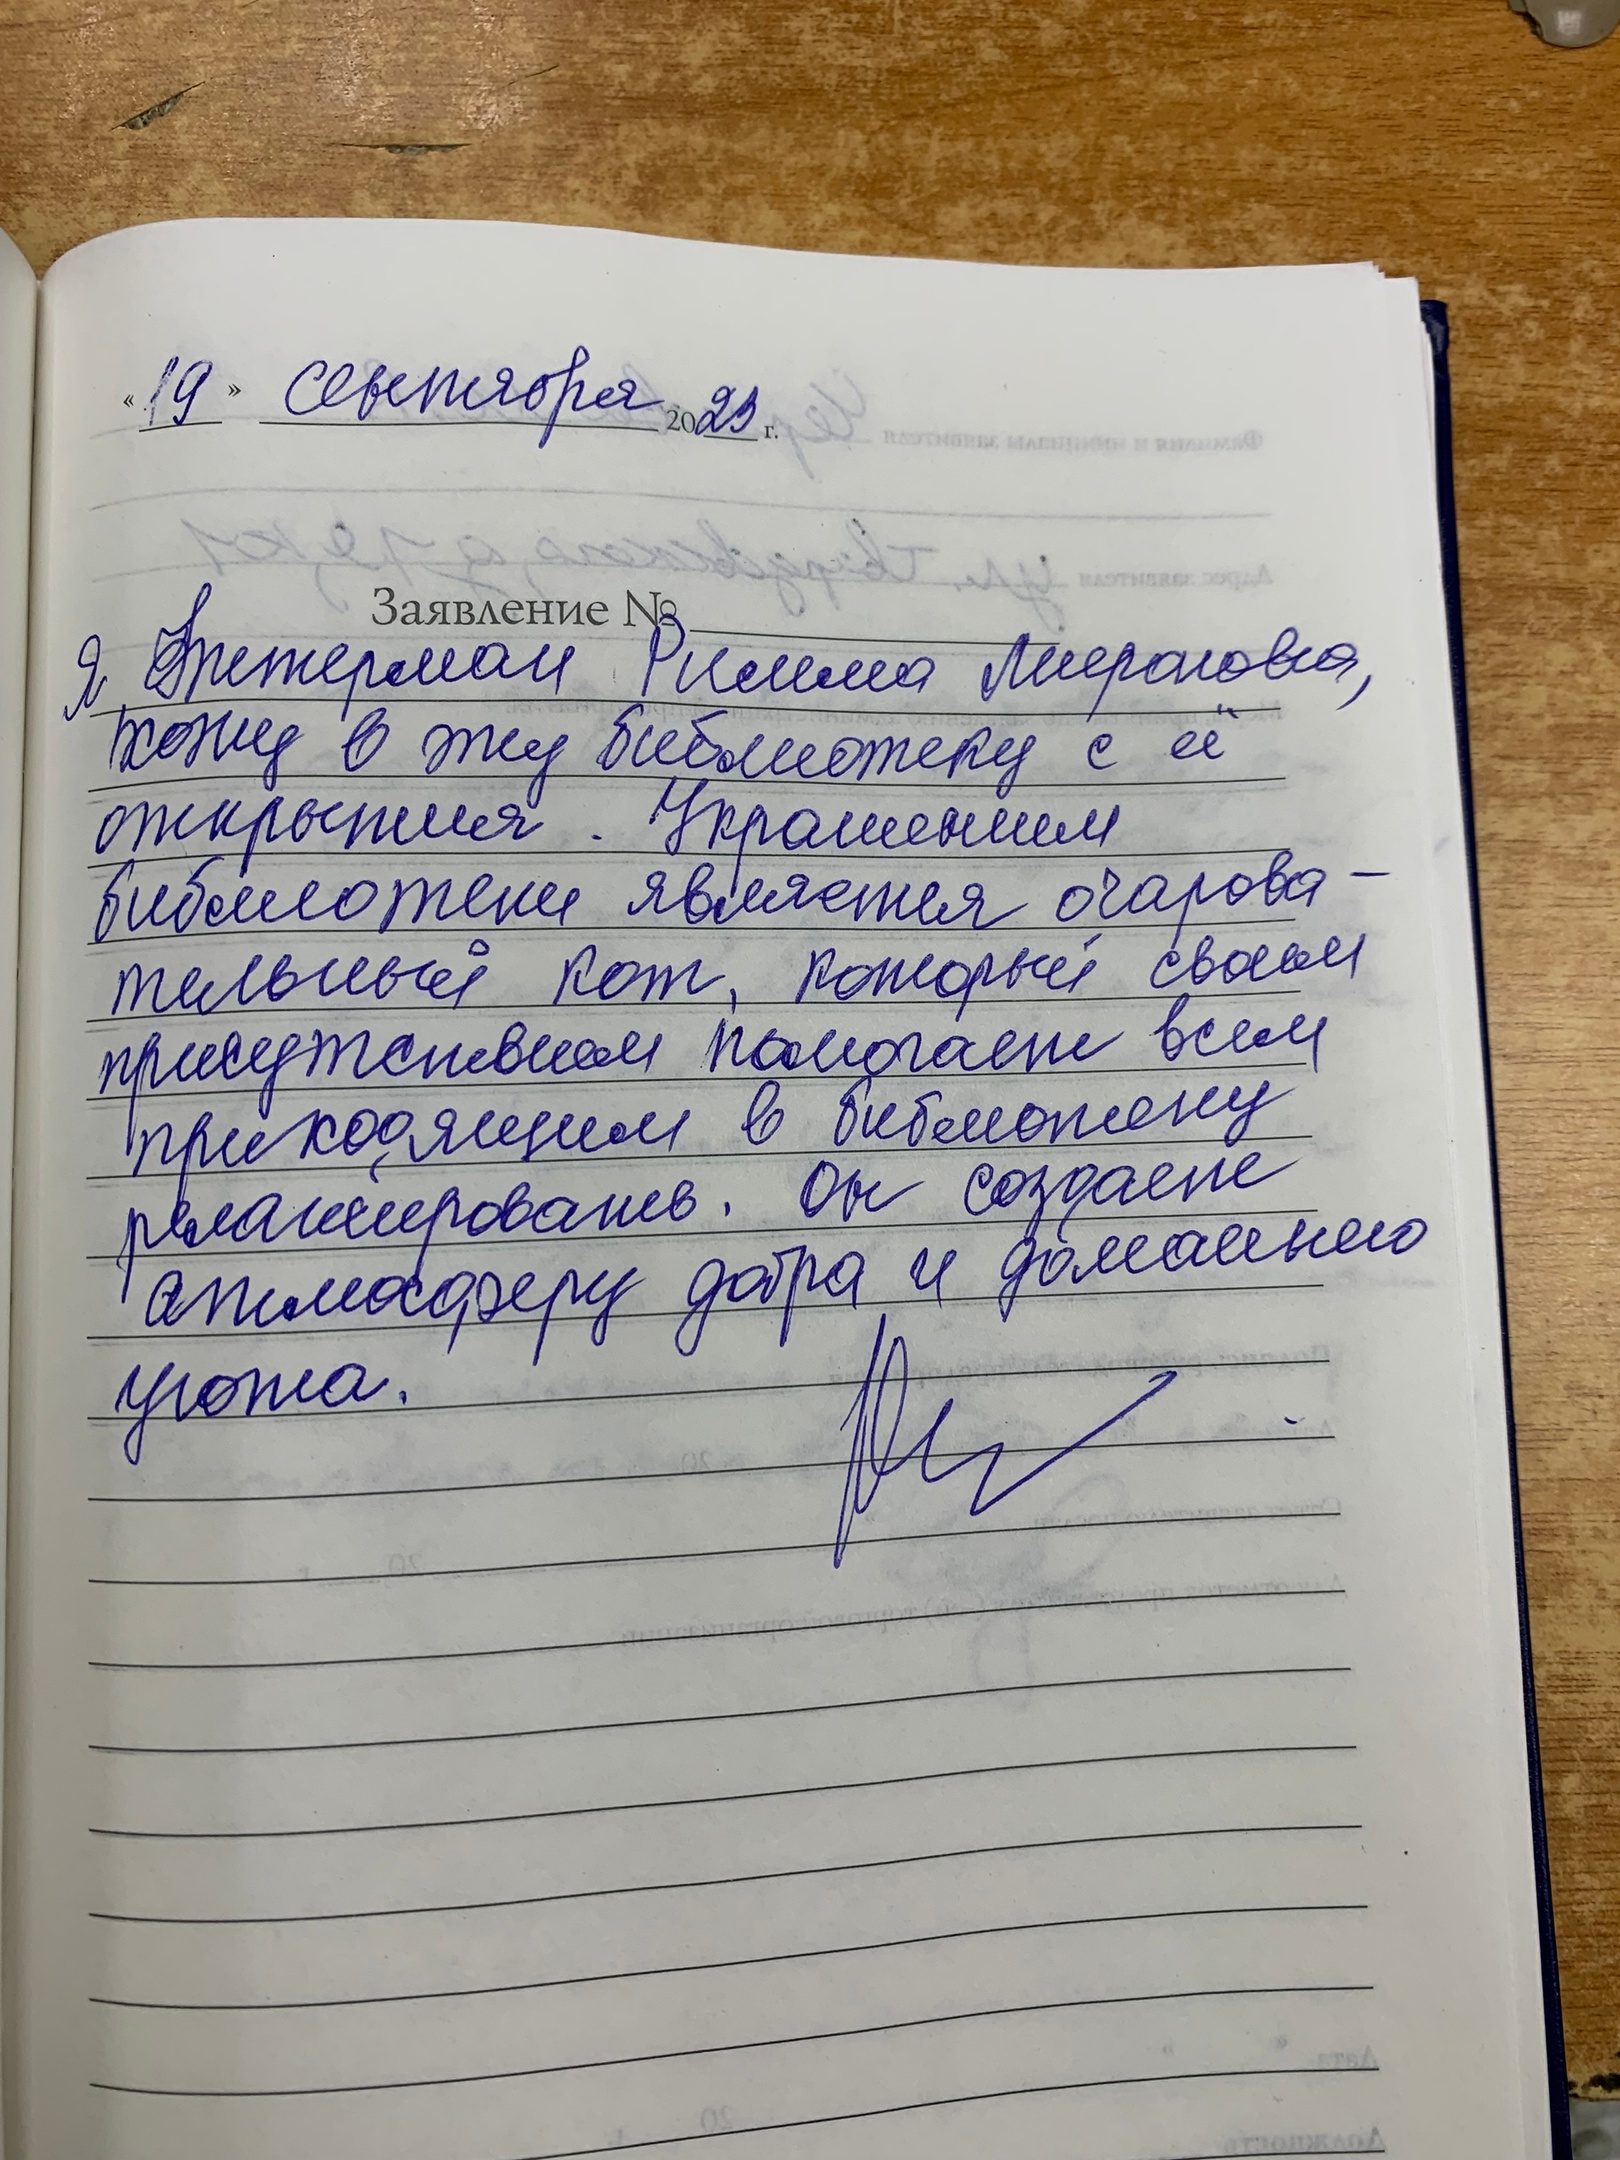 «19» сентября 2023 г.
Заявление №
Я Риммa Мироновна,
хожу в эту библиотеку с её
открытия. Украшением
библиотеки является очарова-
тельный кот, который своим
присутствием помогает всем
приходящим в библиотеку
релаксировать. Он создает
атмосферу добра и домашнего
уюта.